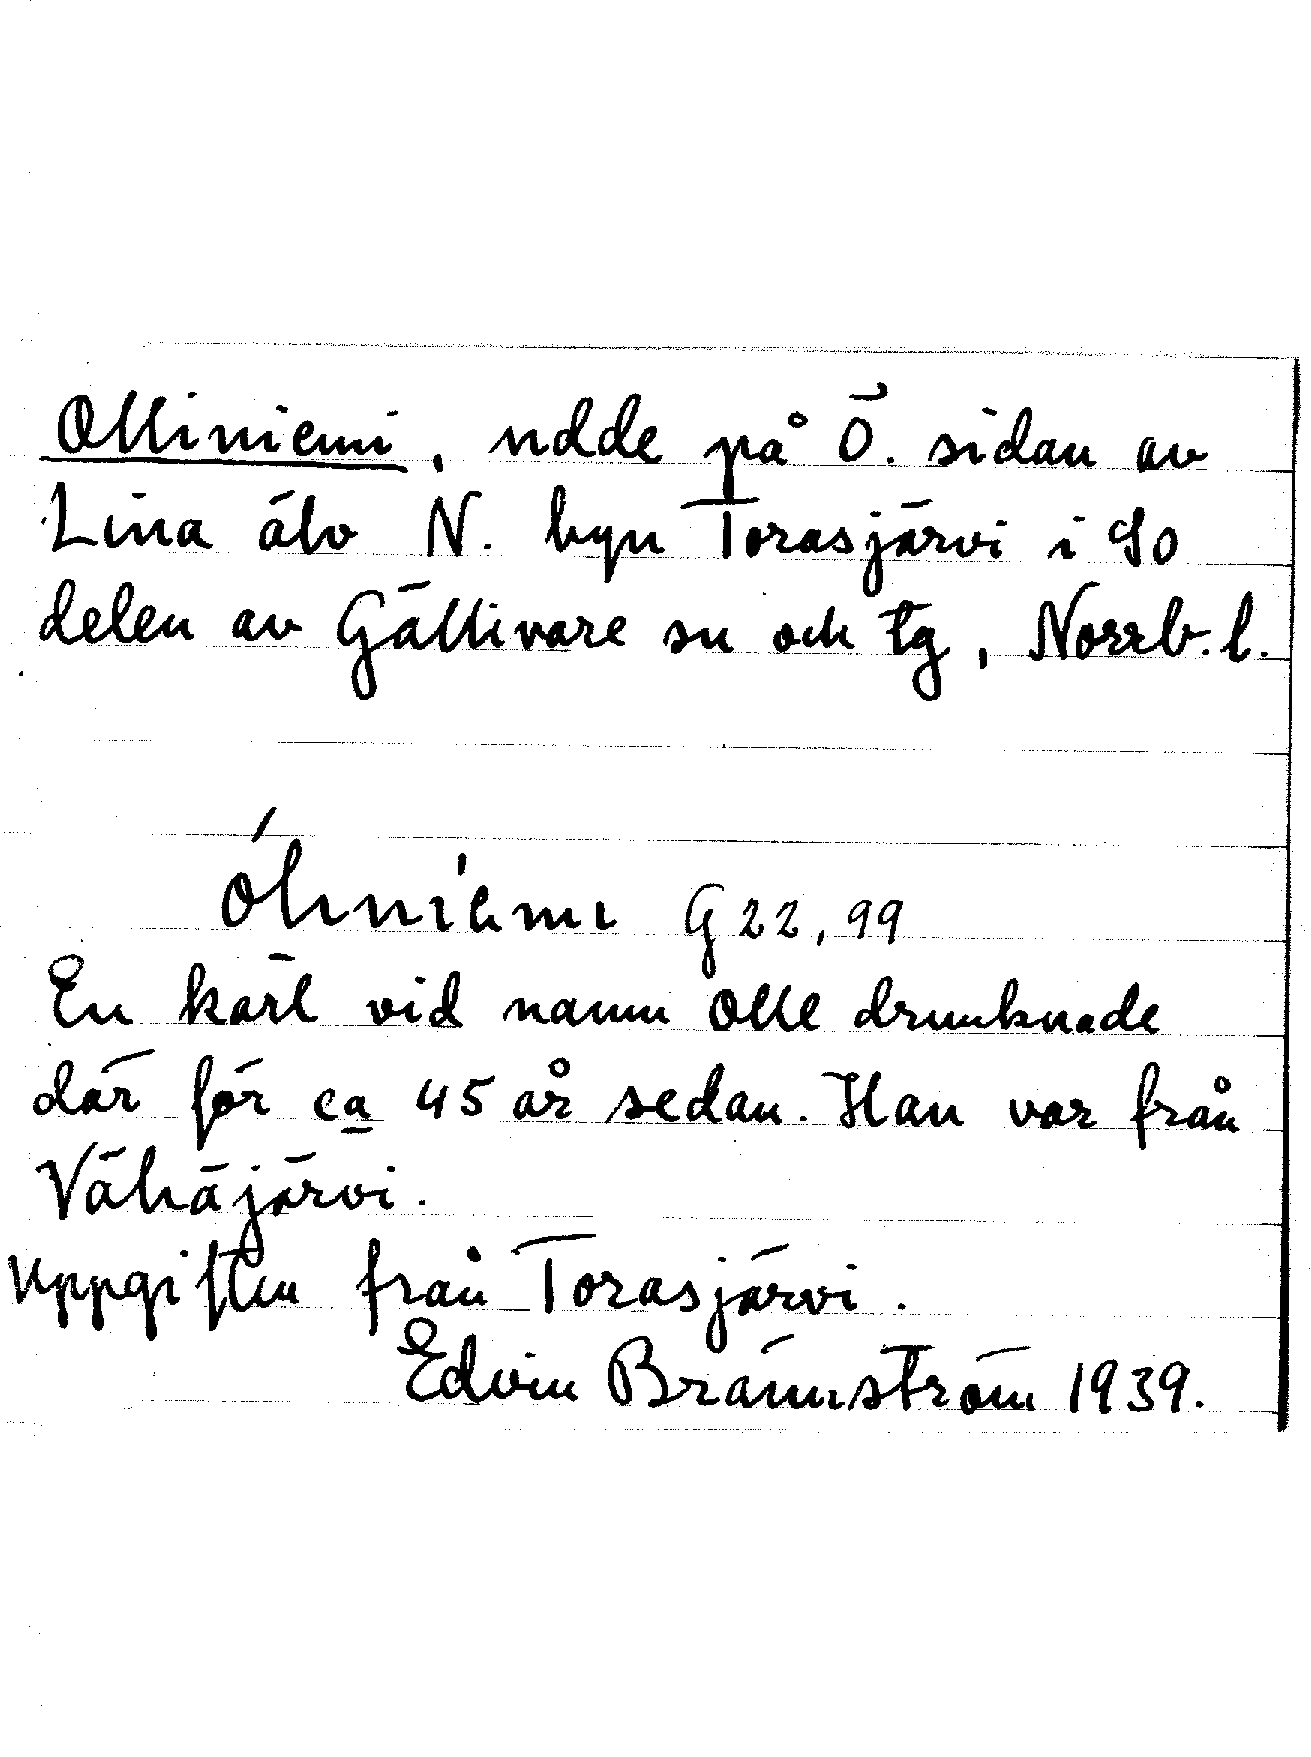 Olliniemi, udde på Ö. sidan av
Lina älv N. byn Torasjärvi i So
delen av Gällivare sn och tg, Norrb. l.
G 22, 99
En karl vid namn Olle drunknade
där för ca 45 år sedan. Han var från
Vähäjärvi.
Uppgiften från Torasjärvi.
Edvin Brännström 1939.